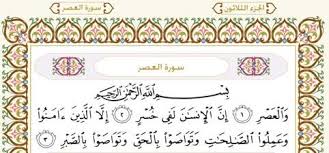 سورة العصر
الجزء الثلاثون
سورة العصر
بِسْمِ اللَّهِ الرَّحْمَٰنِ الرَّحِيمِ
وَٱلْعَصْرِ ١ إِنَّ ٱلْإِنسَٰنَ لَفِى خُسْرٍ ٢ إِلَّا ٱلَّذِينَ ءَامَنُوا۟
وَعَمِلُوا۟ ٱلصَّٰلِحَٰتِ وَتَوَاصَوْا۟ بِٱلْحَقِّ وَتَوَاصَوْا۟ بِٱلصَّبْرِ ٣